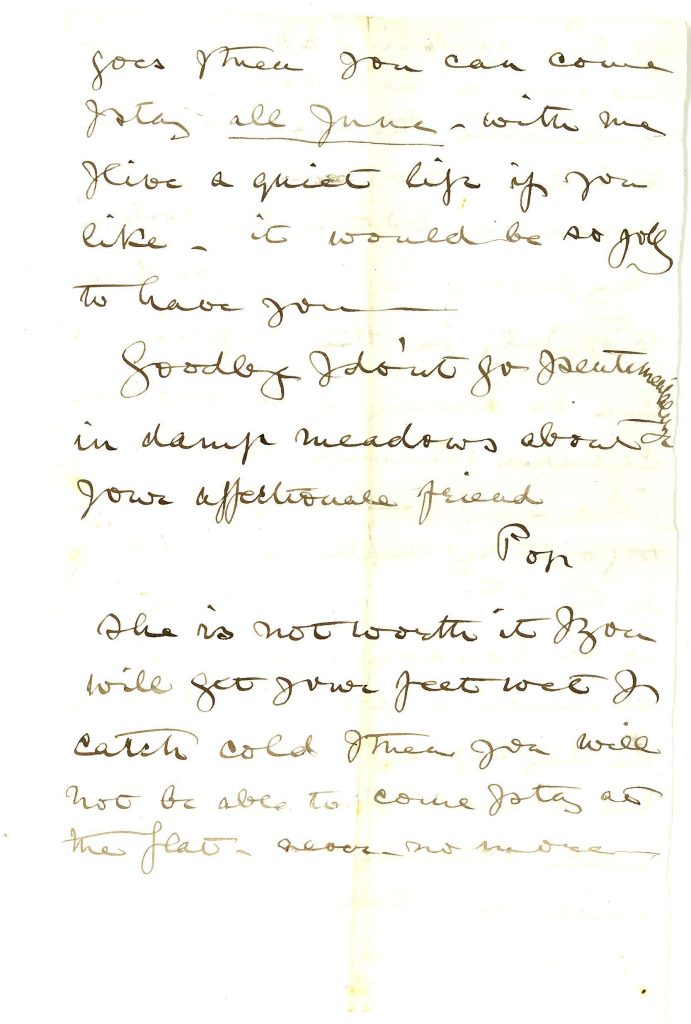 goes & then you can come
& stay all June - with me
& live a quiet life if you
like - it would be so jolly
to have you
Goodbye & do'nt go & sentimentalize
in damp meadows about
your affectionate friend
Pop
she is not worth it & you
will get your feet wet &
catch cold & then you will
not be able to come & stay at
the flat - never no more